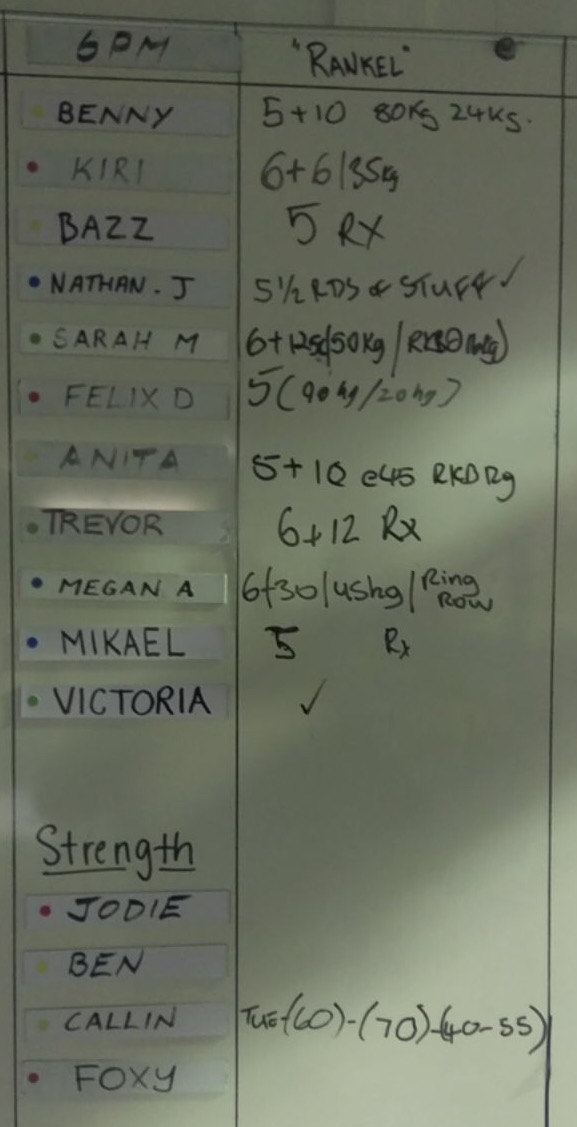 6PM "RANKEL"
BENNY 5+10 80Kg 24Ks.
KIRI 6+6/35kg
BAZZ 5 RX
NATHAN. J 5 1/2 RDS & STUFF ✓
SARAH M 6+ 50Kg
FELIX D 5 (90kg/20kg)
ANITA 5+10 e45
TREVOR 6+12 Rx
MEGAN A 6+30/45kg/Ring Row
MIKAEL 5 Rx
VICTORIA ✓
Strength
JODIE
BEN
CALLIN TUE-(60)-(70)-(40-55)
FOXY